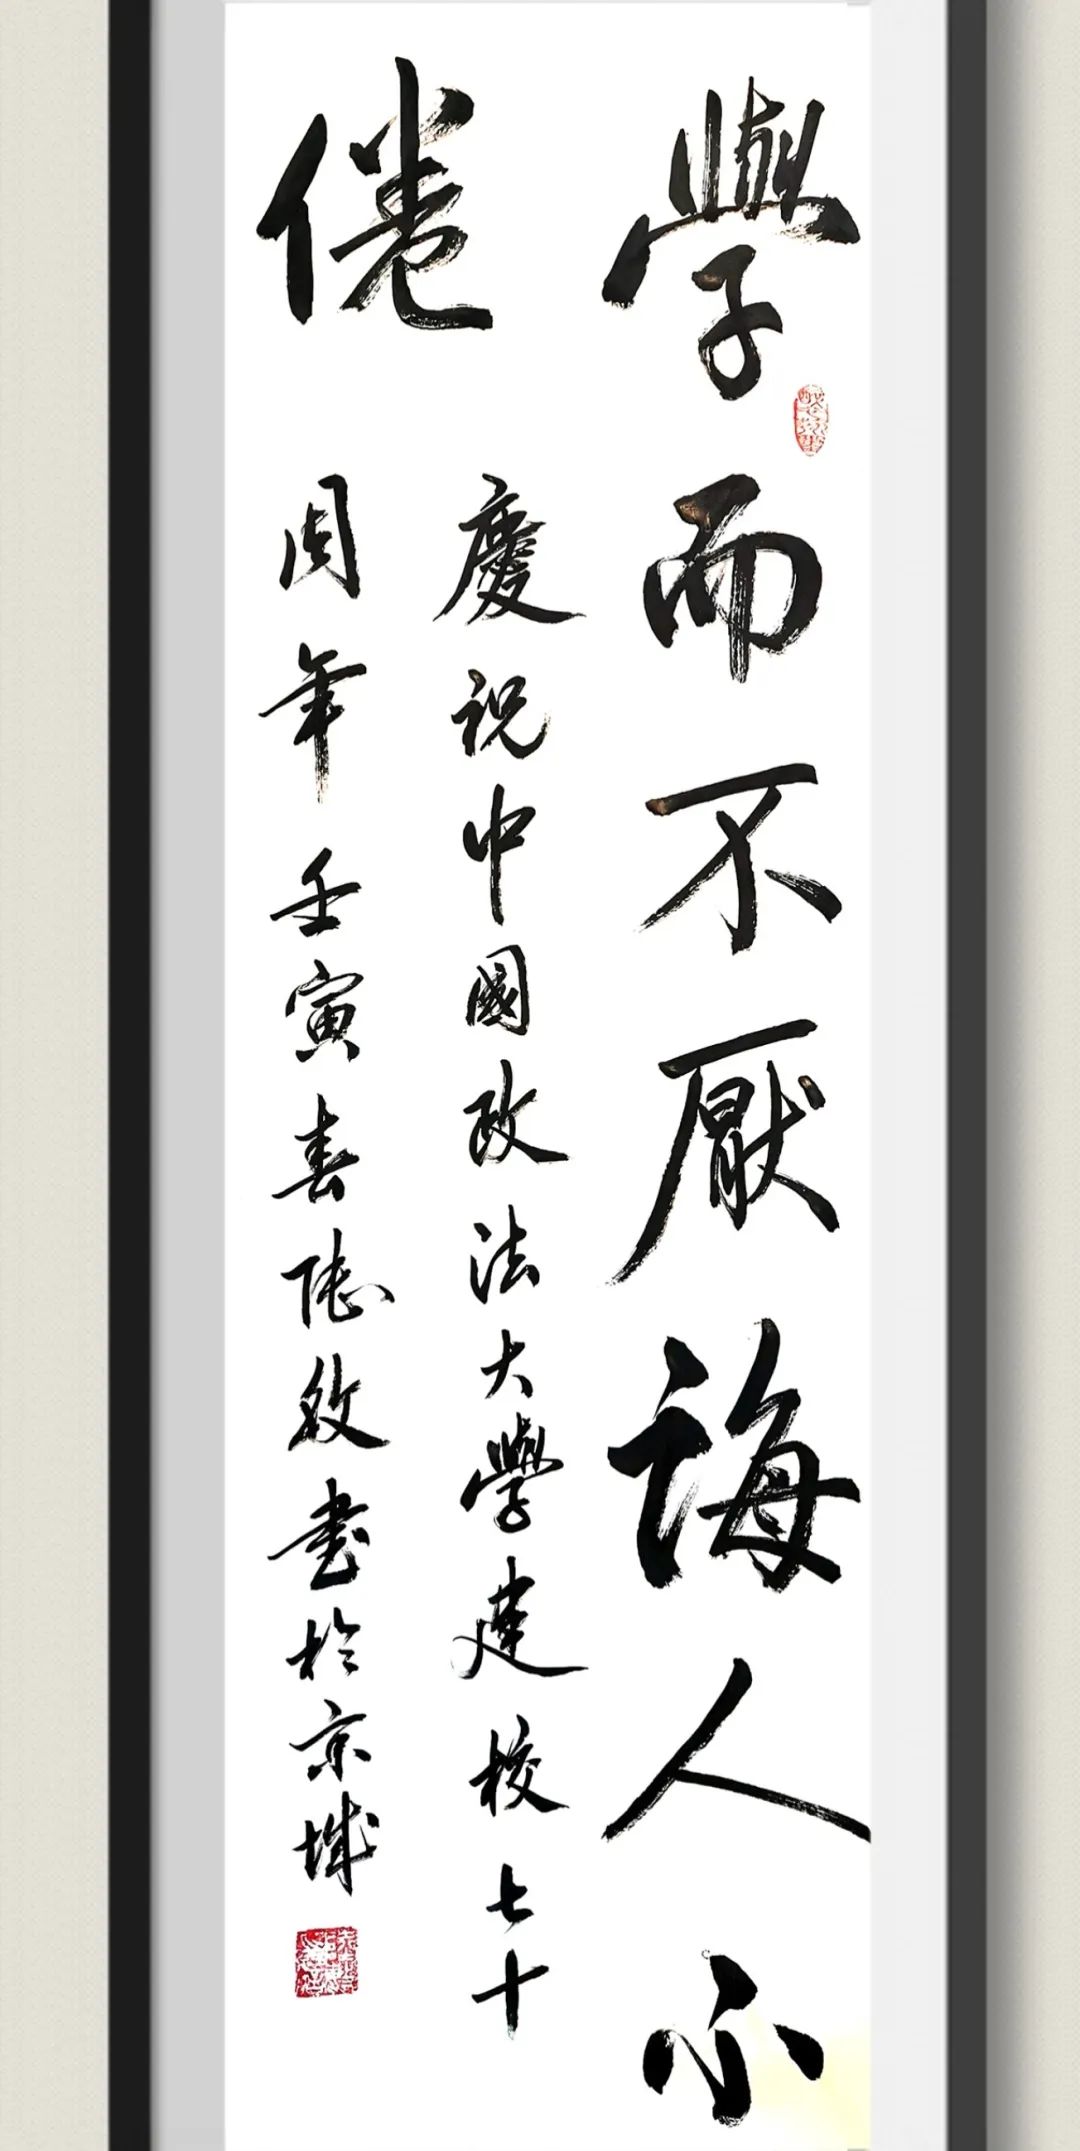 學而不厭誨人不
倦
慶祝中國政法大學建校七十
周年 壬寅春陸敬書於京城